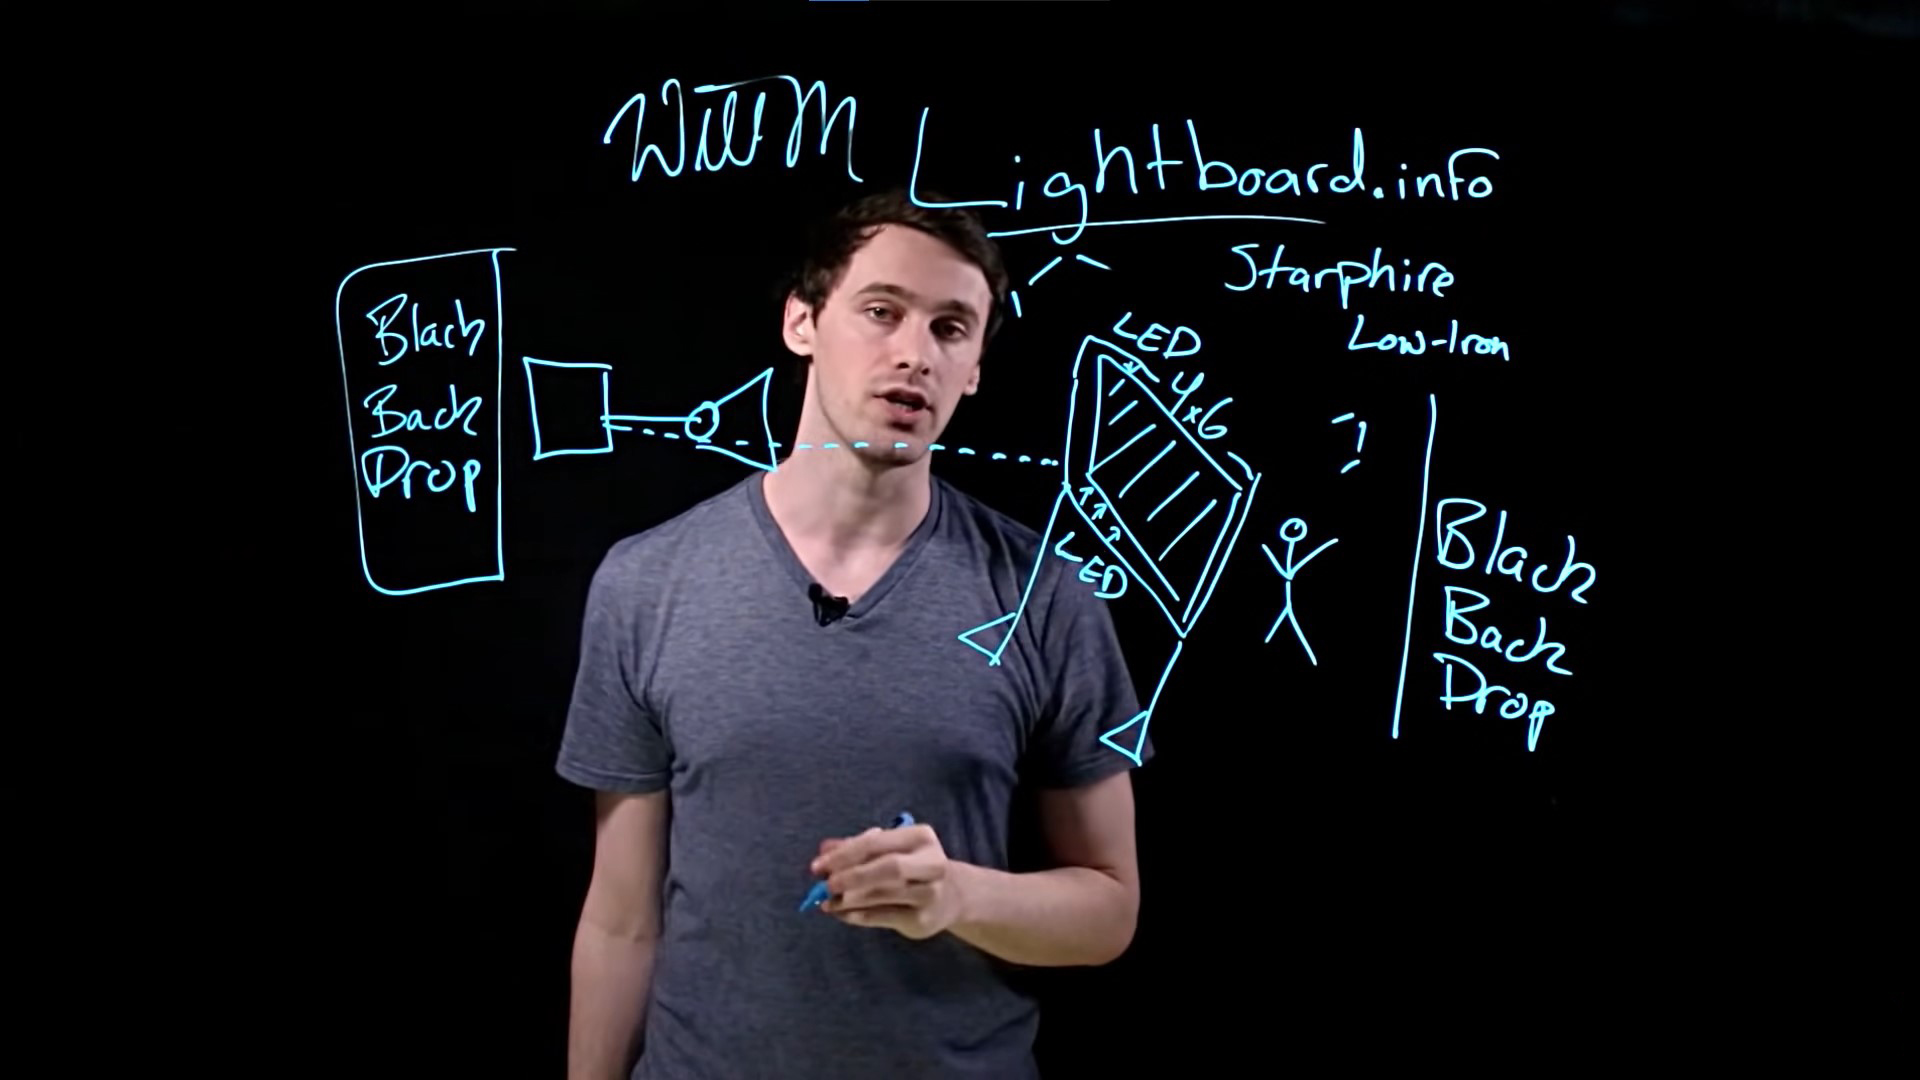 Will M
Lightboard.info
Starphire
Low-Iron
Black
Back
Drop
LED
4x6
LED
?
Black
Back
Drop